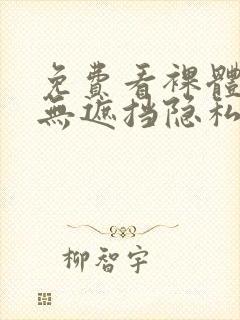 免費看裸體
無遮挡隐私
柳智宇